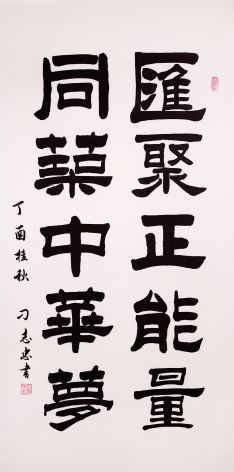 匯聚正能量
同築中華夢
丁酉桂秋 刁志忠書